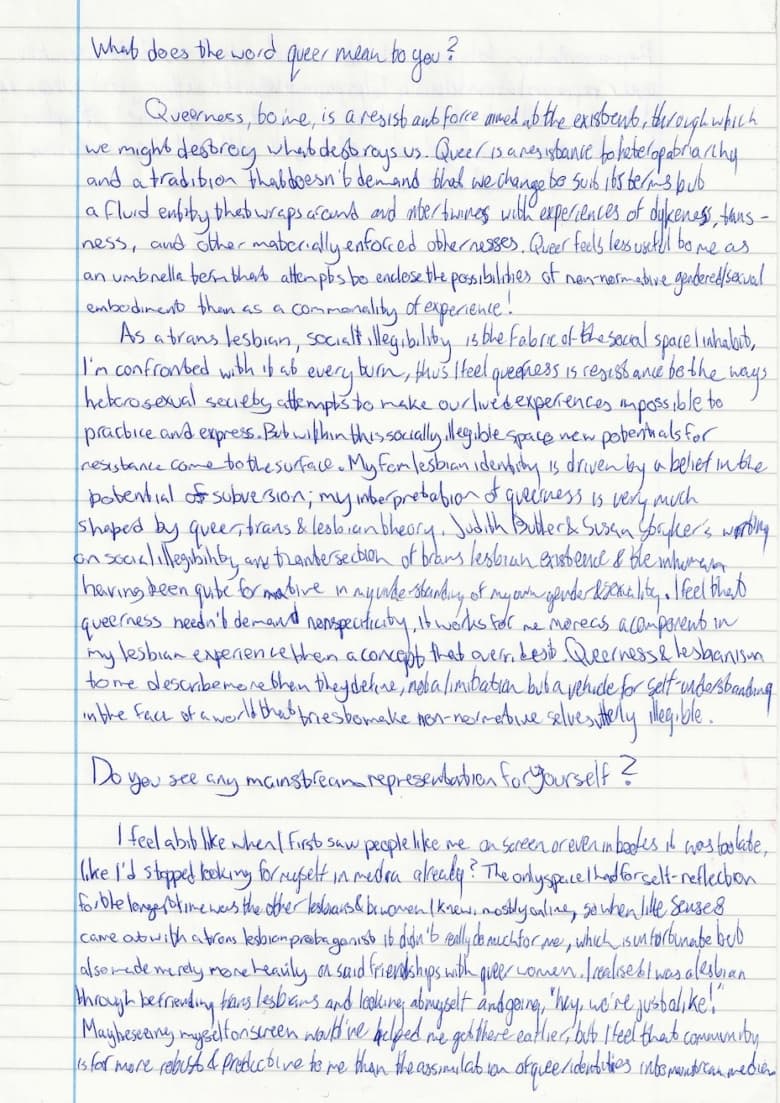 What does the word queer mean to you?
Queerness, to me, is a resistant force aimed at the existent, through which
we might destroy what destroys us. Queer is a resistance to heteropatriarchy
and a tradition that doesn't demand that we change to suit its terms but
a fluid entity that wraps around and intertwines with experiences of dykeness, trans-
ness, and other materially enforced othernesses. Queer feels less useful to me as
an umbrella term that attempts to enclose the possibilities of non-normative gendered/sexual
embodiment than as a commonality of experience!
As a trans lesbian, social illegibility is the fabric of the social space I inhabit,
I'm confronted with it at every turn, thus I feel queerness is resistance to the ways
heterosexual society attempts to make our lived experiences impossible to
practice and express. But within this socially illegible space new potentials for
resistance come to the surface. My fem lesbian identity is driven by a belief in the
potential of subversion; my interpretation of queerness is very much
shaped by queer, trans & lesbian theory. Judith Butler & Susan Stryker's writing
on social illegibility and the intersection of trans lesbian existence & the inhuman
having been quite formative in my understanding of my own gender & sexuality. I feel that
queerness needn't demand nonspecificity, it works for me more as a component in
my lesbian experience then a concept that overrides it. Queerness & lesbianism
to me describe more then they define, not a limitation but a vehicle for self-understanding
in the face of a world that tries to make non-normative selves utterly illegible.
Do you see any mainstream representation for yourself?
I feel a bit like when I first saw people like me on screen or even in books it was too late,
like I'd stopped looking for myself in media already? The only space I had for self-reflection
for the longest time was the other lesbians & bi women I knew, mostly online, so when like Sense8
came out with a trans lesbian protagonist it didn't really do much for me, which is unfortunate but
also made me rely more heavily on said friendships with queer women. I realised I was a lesbian
through befriending trans lesbians and looking at myself and going, "hey, we're just alike!"
Maybe seeing myself on screen would've helped me get there earlier, but I feel that community
is far more robust & productive to me than the assimilation of queer identities into mainstream media.